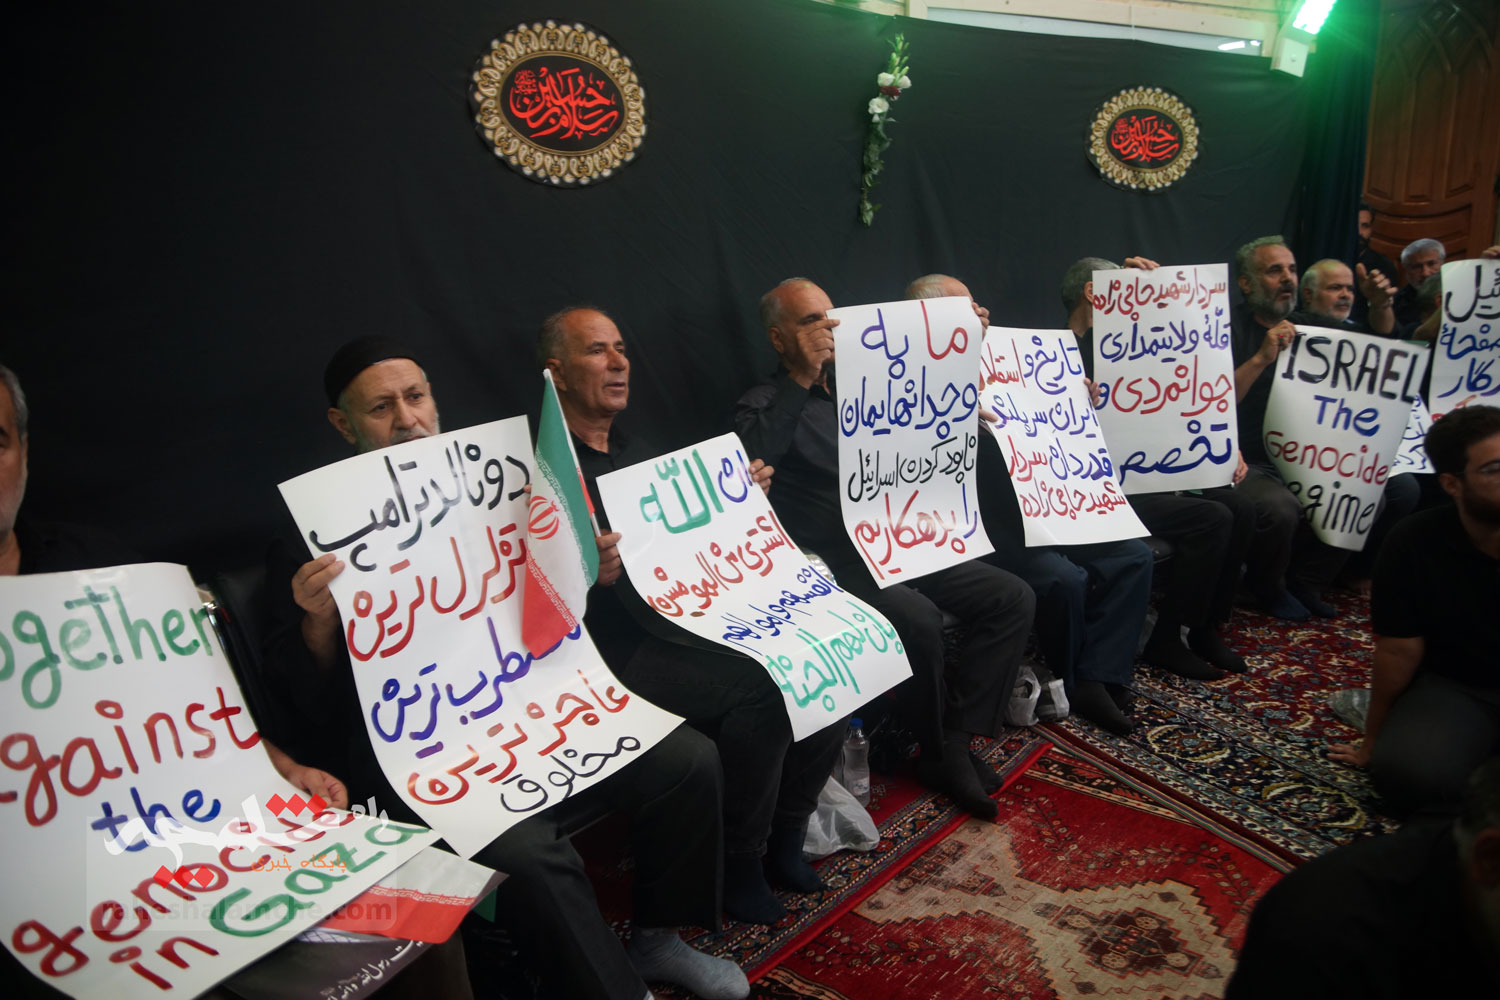 سلام بر حسین
سلام بر حسین
Together
against
the
genocide
in Gaza
دونالد ترامپ
متزلزل ترین
مضطرب ترین
عاجز ترین
مخلوق
ان الله
اشتری من المومنین
انفسهم و اموالهم
بان لهم الجنة
ما به
وجدانهایمان
نابود کردن اسرائیل
را بدهکاریم
تاریخ و استقلال
ایران سربلند
قدردان سردار
شهید حاجی زاده
سردار شهید حاجی زاده
قلّهٔ ولایتمداری
جوانمردی و
تخصص
ISRAEL
The
Genocide
Regime
صفحهٔ
راه شلمچه
پایگاه خبری
raheshalamche.com